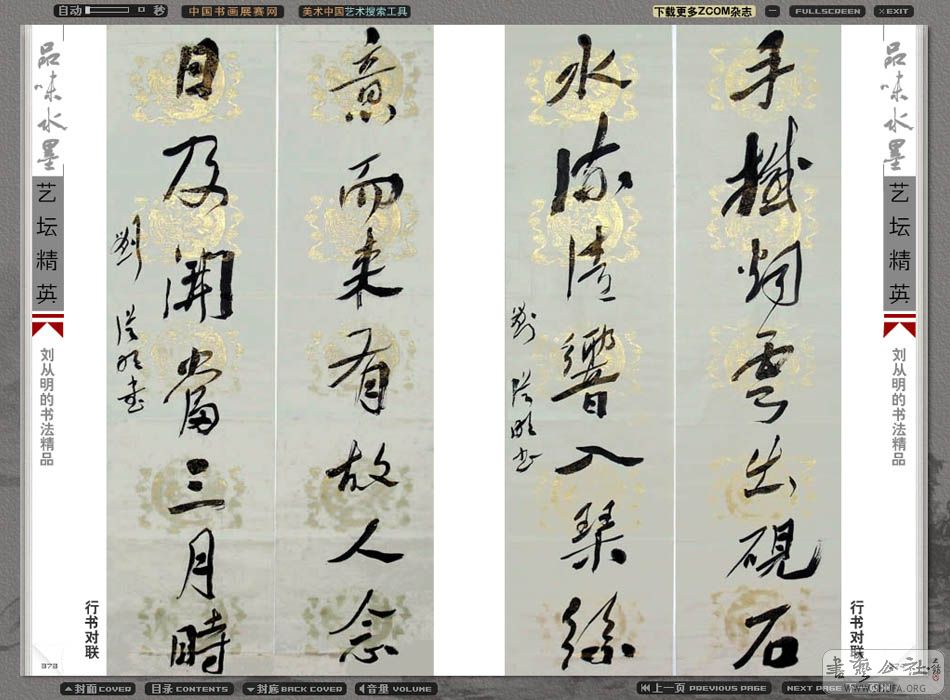 自动 秒
中国书画展赛网
美术中国艺术搜索工具
下载更多ZCOM杂志
FULLSCREEN
EXIT
品味水墨
艺坛精英
刘从明的书法精品
手 烟雲出硯石
水流清響入琴絲
劉從明书
行书对联
意而来有故人念
日及開當三月時
劉從明书
行书对联
品味水墨
艺坛精英
刘从明的书法精品
封面 COVER
目录 CONTENTS
封底 BACK COVER
音量 VOLUME
上一页 PREVIOUS PAGE
NEXT PAGE
書藝公社